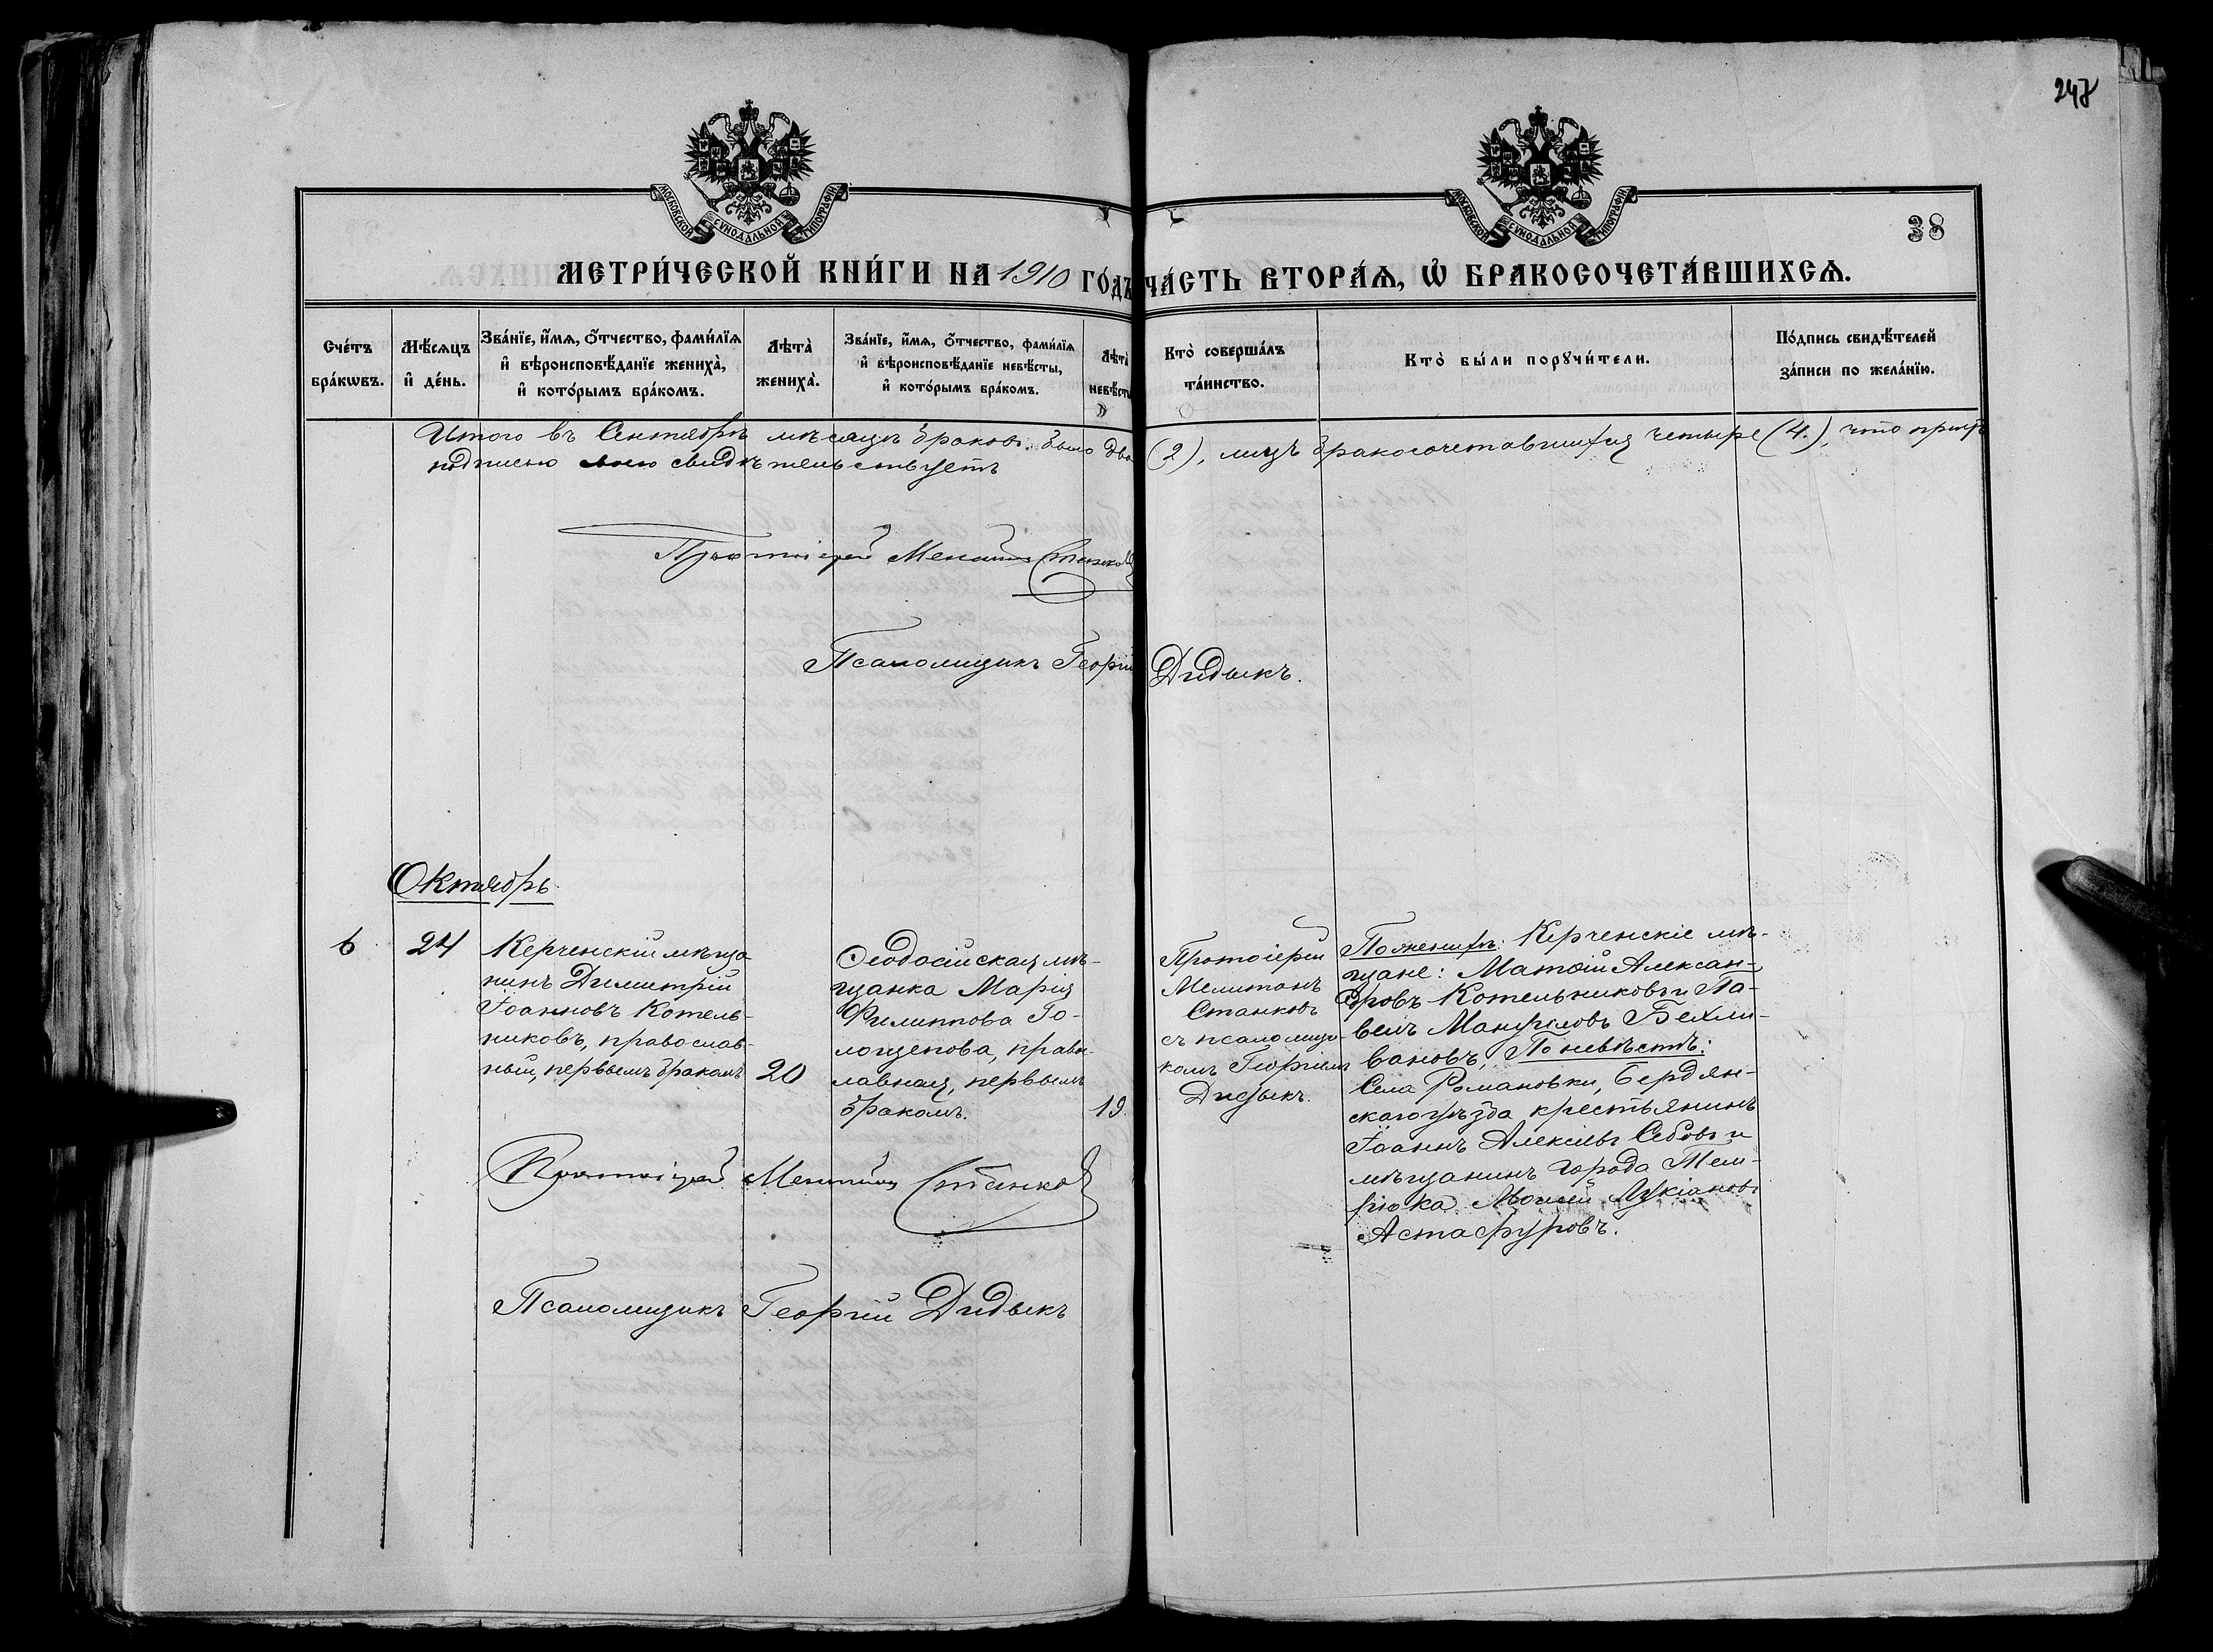 247
МОСКОВСКОЙ СѴНОДАЛЬНОЙ ТИПОГРАФІИ
МОСКОВСКОЙ СѴНОДАЛЬНОЙ ТИПОГРАФІИ
38
МЕТРИ́ЧЕСКОЙ КНИ́ГИ НА 1910 ГО́ДЪ
ЧА́СТЬ ВТОРА́Ѧ, Ѡ҆ БРАКОСОЧЕТА́ВШИХСѦ.
Сче́тъ бра́кѡвъ.
Мѣ́сѧцъ и҆ де́нь.
Зва́нїе, и҆́мѧ, ѻ҆́тчество, фами́лїѧ и҆ вѣроисповѣ́данїе жениха̀, и҆ кото́рымъ бра́комъ.
Лѣта̀ жениха̀.
Зва́нїе, и҆́мѧ, ѻ҆́тчество, фами́лїѧ и҆ вѣроисповѣ́данїе невѣ́сты, и҆ кото́рымъ бра́комъ.
Лѣта̀ невѣ́сты
Кто̀ соверша́лъ та́инство.
Кто̀ бы́ли порꙋчи́тели.
По́дпись свидѣ́телей за́писи по жела́нїю.
Итого въ Сентябрѣ мѣсяцѣ браковъ было два (2), лицъ бракосочетавшихся четыре (4.), что
подписью своею свидѣтельствуетъ
Протоіерей Мелитонъ Станковъ
Псаломщикъ Георгій Дидыкъ.
Октябрь
6
24
Керченскій мѣща-
нинъ Димитрій
Іоанновъ Котель-
никовъ, православ-
ный, первымъ бракомъ
20
Ѳеодосійская мѣ-
щанка Марія
Филиппова Го-
лощепова, правос-
лавная, первымъ
бракомъ.
19.
Протоіерей
Мелитонъ
Станковъ
съ псаломщи-
комъ Георгіемъ
Дидыкъ.
По женихѣ: Керченскіе мѣ-
щане: Матѳій Алексан-
дровъ Котельниковъ и Па-
велъ Мануиловъ Бехли-
вановъ, По невѣстѣ:
Села Романовки, Бердян-
скаго уѣзда крестьянинъ
Іоаннъ Алексіевъ Себовъ и
мѣщанинъ города Тем-
рюка Моисей Лукіановъ
Астафуровъ.
Протоіерей Мелитонъ Станковъ
Псаломщикъ Георгій Дидыкъ